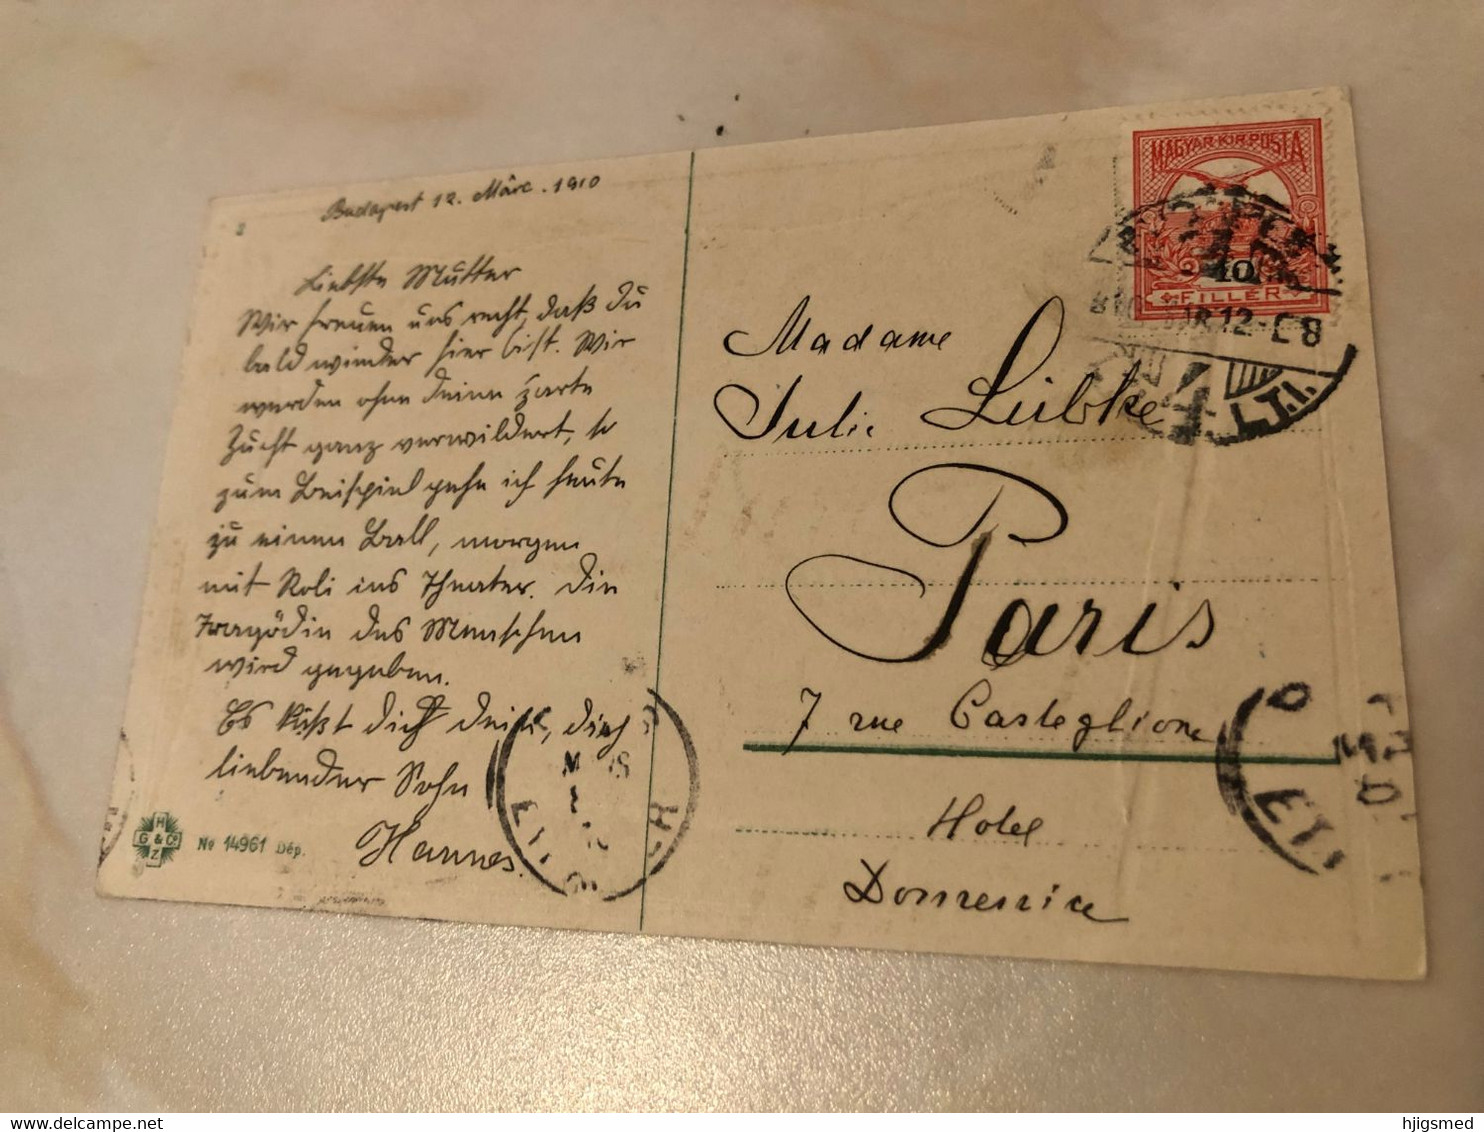 Budapest 12. Märc. 1910
Liebste Mutter
Wir freuen uns recht, daß Du
bald wieder hier bist. Wir
werden ohne Deine zarte
Zucht ganz verwildert, so
zum Beispiel gehe ich heute
zu einem Ball, morgen
mit Roli ins Theater. Die
Tragödie des Menschen
wird gegeben.
Es küßt dich Dein, dich
liebender Sohn
Hannes.
H
G & Co
Z
No 14961 Dép.
MAGYAR KIR. POSTA
10
FILLÉR
12
Madame
Julie Lübke
Paris
7 rue Casteglione
Hotel
Domenice
delcampe.net
hjlgsmed